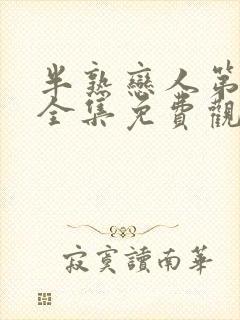 半熟戀人第
全集免費觀
寂寞讀南華